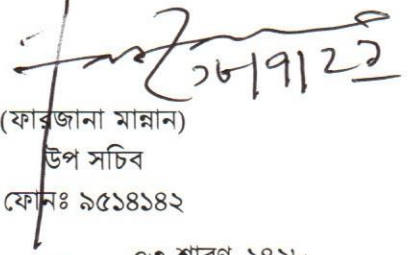 (ফারজানা মান্নান)
উপ সচিব
ফোনঃ ৯৫১৪১৪২
শ্রাবণ